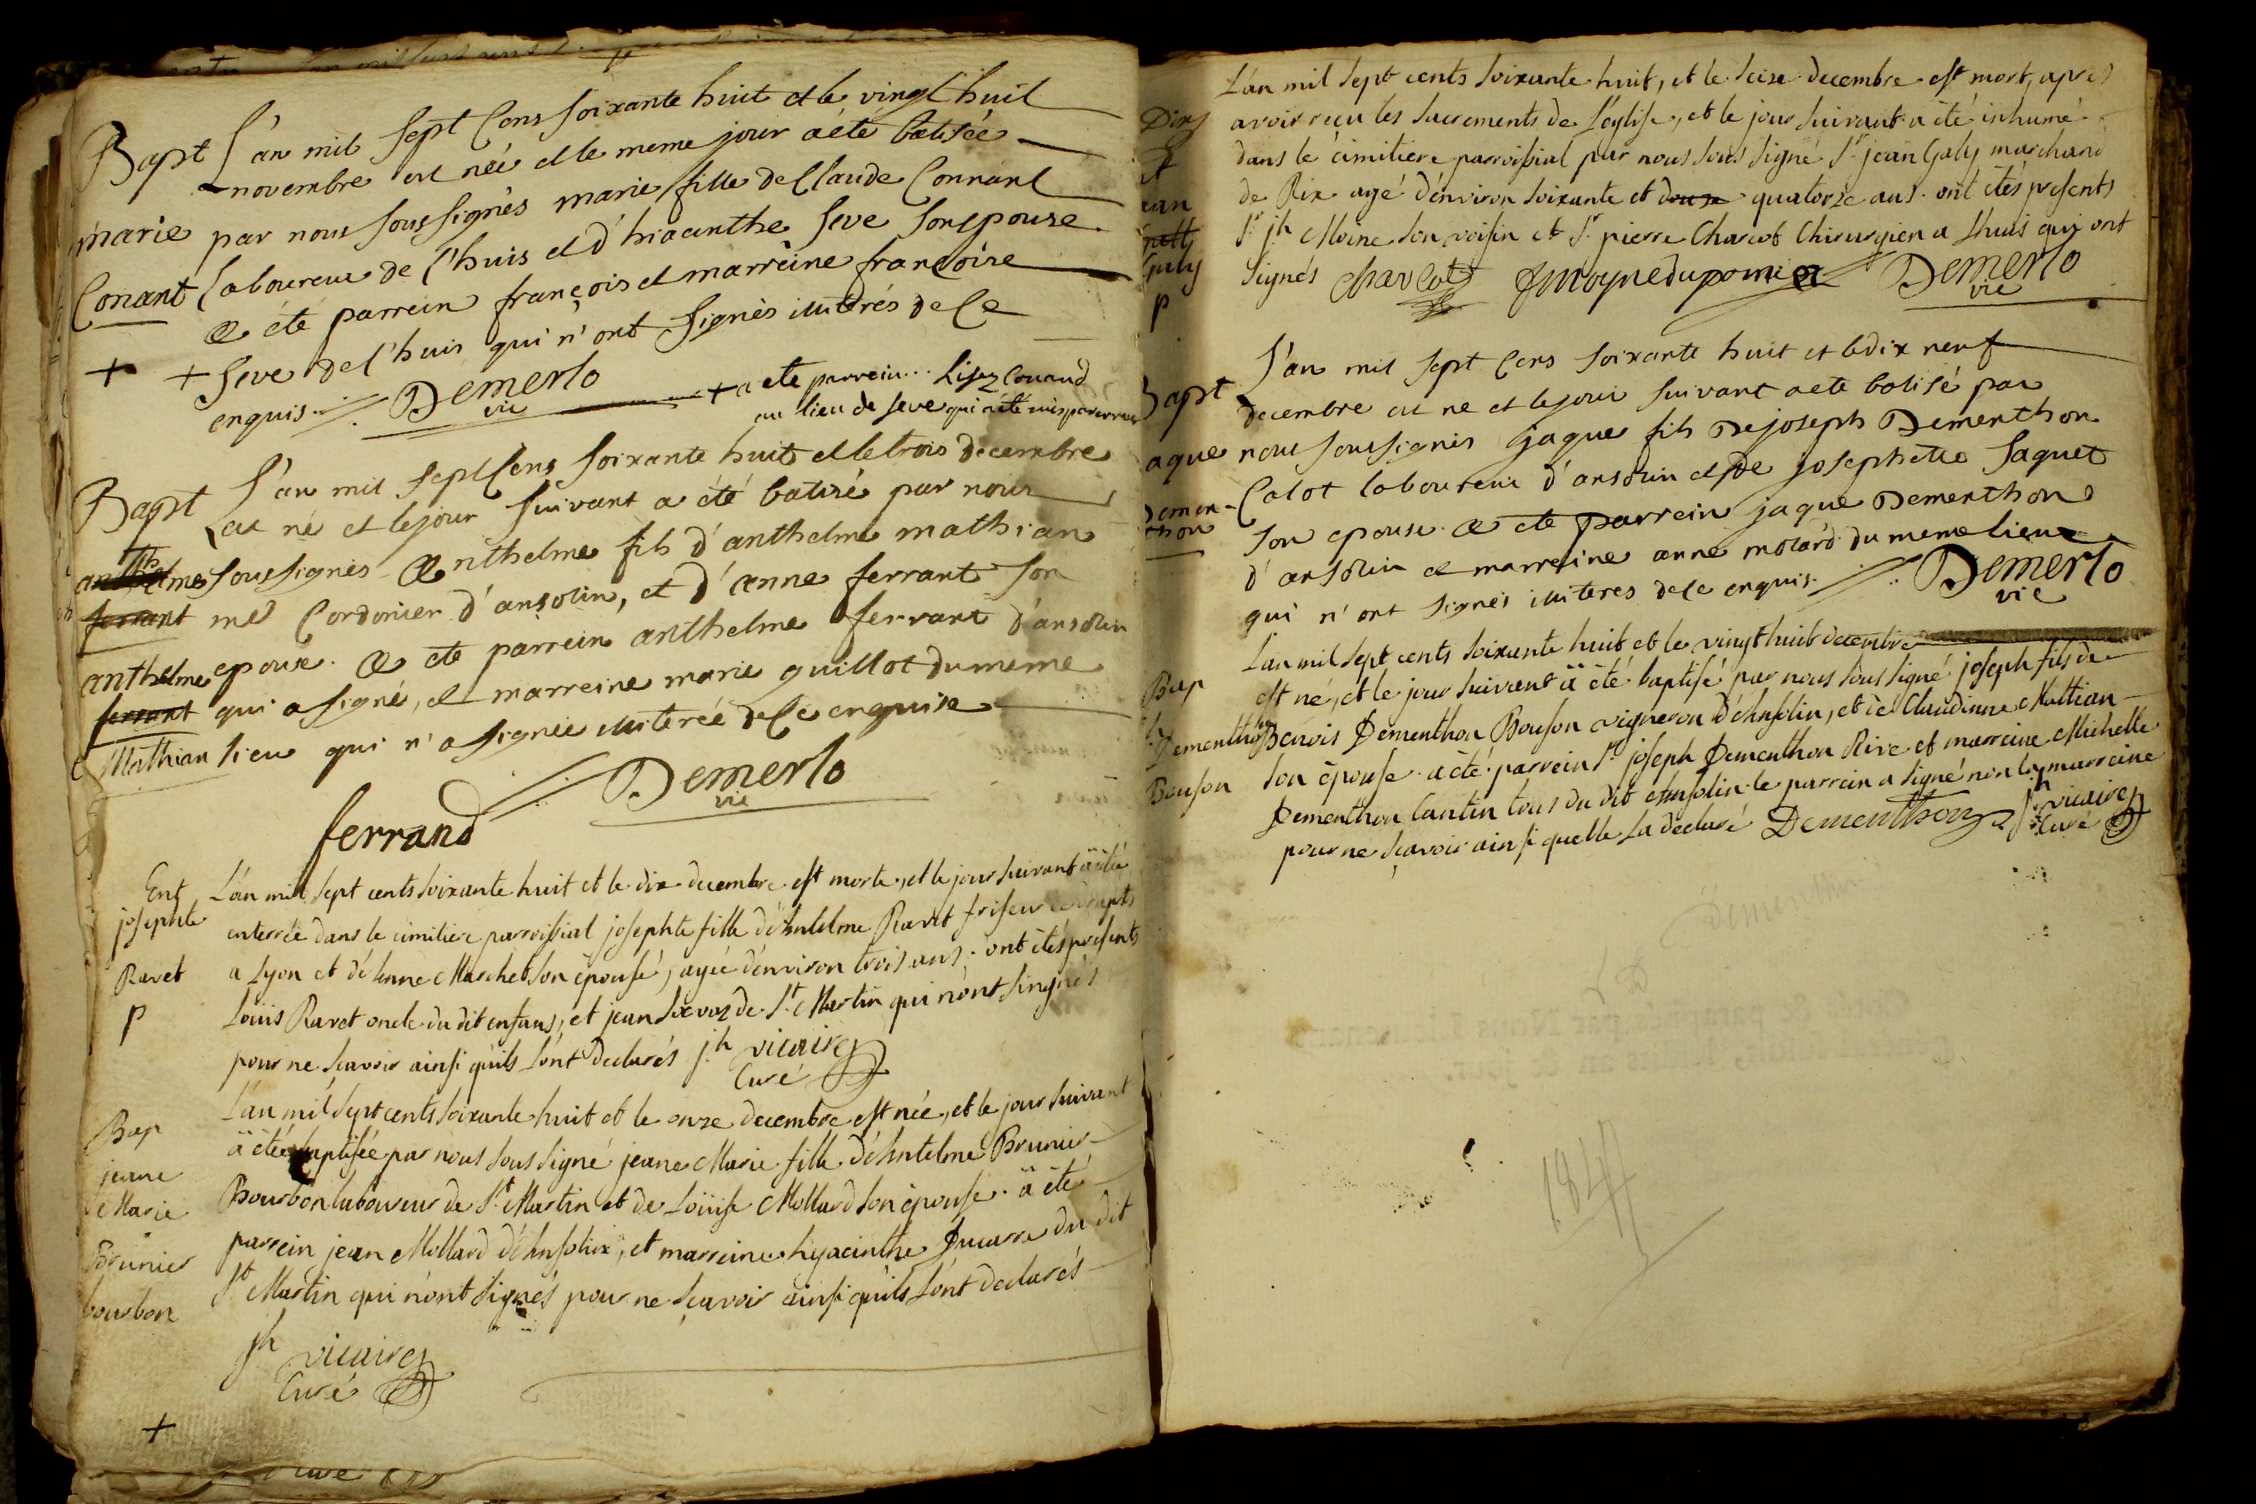 Bapt
marie
Conant
+
L'an mil sept Cens soixante huit et le vingt huit
novembre est née et le meme jour a été batisée
par nous soussignés marie fille de Claude Connant
laboureur de l'huis et d'hiacanthe Seve son epouse
a été parrein françois et marreine françoise
+ Seve de l'huis qui n'ont signés illiterés de ce
enquis Demerlo
vic
+ a ete parrein... lisez Conand
au lieu de seve qui a été mis par erreur
Bapt
anthelme
ferrant
anthelme
ferrant
Mathian
L'an mil sept Cens soixante huit et le trois decembre
est né et le jour suivant a été batisé par nous
soussignés Anthelme fils d'anthelme mathian
me Cordonier d'ansolin, et d'anne ferrant son
epouse. a ete parrein anthelme ferrant d'ansolin
qui a signé, et marreine marie guillot du meme
lieu qui n'a signée illiterée de ce enquise
ferrand
Demerlo
vic
Ent
josephte
Ravet
p
L'an mil sept cents soixante huit et le dix decembre est morte, et le jour suivant a été
enterrée dans le cimitiere parroissial josephte fille d'Antelme Ravet friseur
a Lyon et d'Anne Marchet son épouse, agée d'environ trois ans. ont étés presents
Louis Ravet oncle du dit enfans, et jean de St. Martin qui n'ont singnés
pour ne scavoir ainsi qu'ils l'ont declarés jh vicaire
Curé
Bap
jeane
Marie
Brunier
bourbon
L'an mil sept cents soixante huit et le onze decembre est née, et le jour suivant
a étée baptisée par nous sous signé jeane Marie fille d'Antelme Brunier
Bourbon laboureur de St. Martin et de Loüise Mollard son épouse. a été
parrein jean Mollard d'Ansolin, et marreine hyacinthe Ducarre du dit
St Martin qui n'ont signés pour ne scavoir ainsi qu'ils l'ont declarés
jh vicaire
Curé
+
L'an mil sept cents soixante huit, et le seize decembre est mort, apres
avoir reçu les sacrements de L'église, et le jour suivant a été inhumé
dans le cimitiere parroissial par nous sous signé Sr. jean Galy marchand
de Rix agé d'environ soixante et douze quatorze ans. ont étés presents
Sr. jh Moine son voisin et Sr. pierre Charcot Chirurgien a Lhuis qui ont
signés Charcot jmoyne dupomier Demerlo
vic
Galy
p
Bapt
aque
Demen-
thon
L'an mil sept Cens soixante huit et le dix neuf
decembre est né et le jour suivant a ete batisé par
nous soussignés jaque fils de joseph Dementhon
Calot laboureur d'ansolin et de josephette Saquet
son epouse. a ete parrein jaque Dementhon
d'ansolin et marreine anne molard du meme lieu
qui n'ont signés illiteres de ce enquis. Demerlo
vic
Bap
Dementhon
Bouson
L'an mil sept cents soixante huit et le vingt huit decembre
est né, et le jour suivant a été baptisé par nous sous signé joseph fils de
Benois Dementhon Bouson vigneron d'Ansolin, et de Claudinne Mathian
son épouse. a été parrein Sr. joseph Dementhon Rive et marreine Michelle
Dementhon Cantin tous du dit Ansolin le parrein a signé non la marreine
pour ne scavoir ainsi quelle la declaré Dementhon jh vicaire
Curé
1844